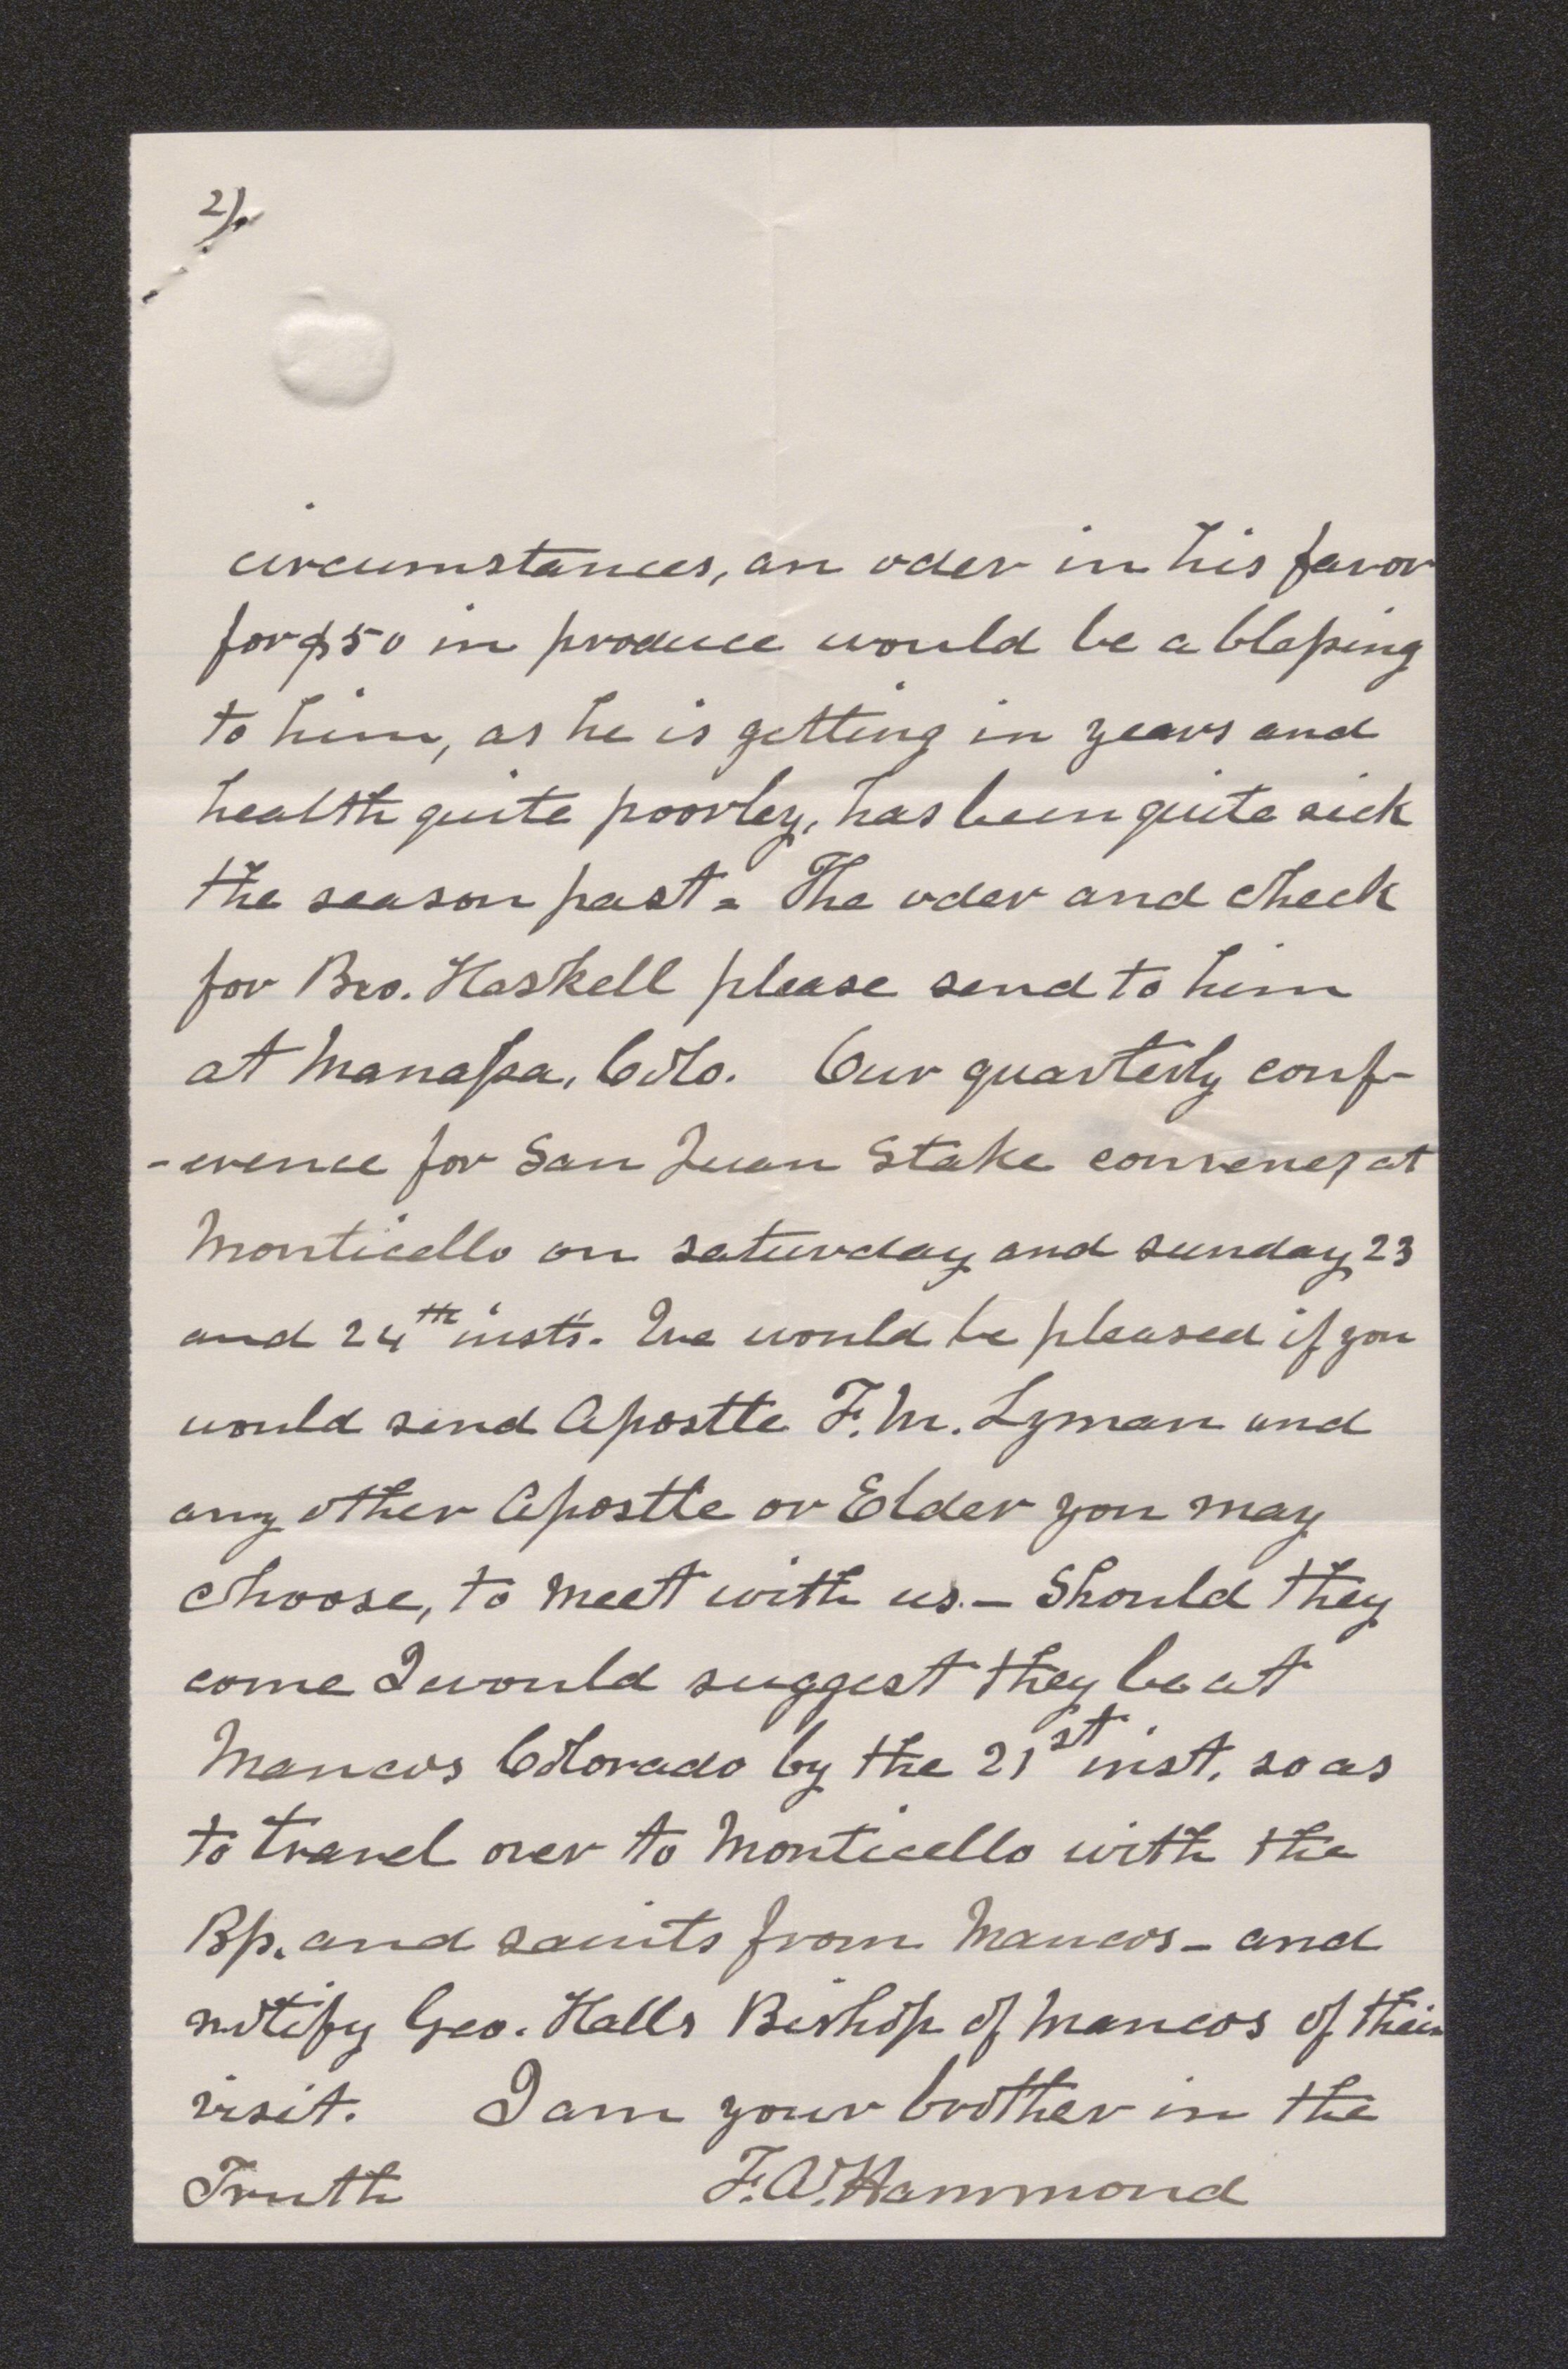 2/.
circumstances, an oder in his favor
for $50 in produce would be a blessing
to him, as he is getting in years and
health quite poorley, has been quite sick
the season past = The oder and check
for Bro. Haskell please send to him
at Manassa, Colo. Our quarterly conf-
-erence for San Juan Stake convenes at
Monticello on saturday and sunday 23
and 24th insts. We would be pleased if you
would send Apostle F. M. Lyman and
any other Apostle or Elder you may
choose, to meet with us. – Should they
come I would suggest they be at
Mancos Colorado by the 21st inst. so as
to travel over to Monticello with the
Bp. and saints from Mancos – and
notify Geo. Halls Bishop of Mancos of their
visit. I am your brother in the
Truth F. A. Hammond